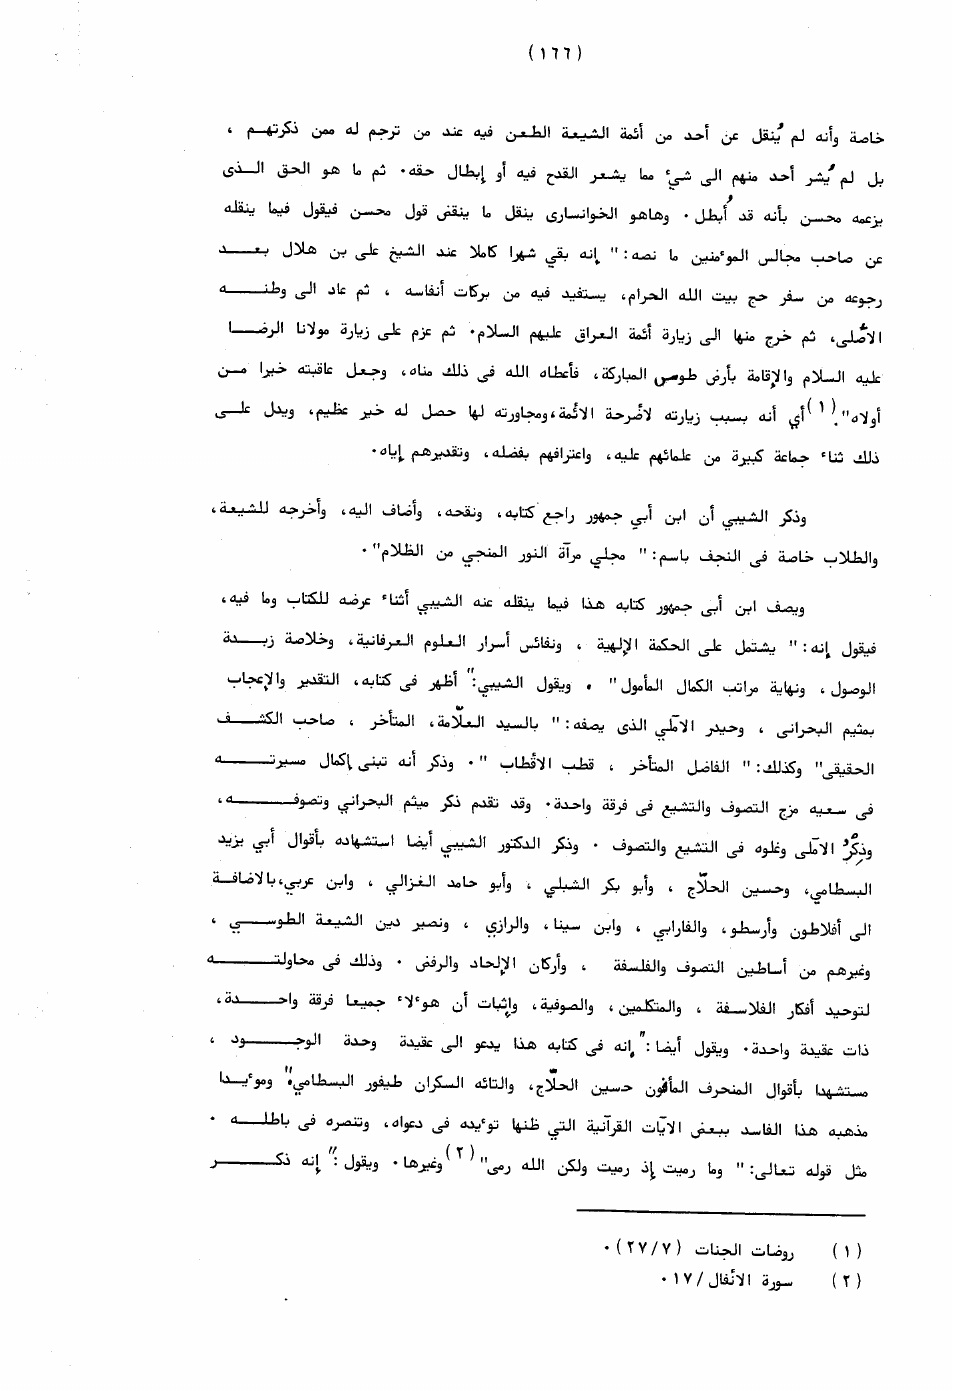 (١٦٦)
خاصة وأنه لم يُنقل عن أحد من أئمة الشيعة الطعن فيه عند من ترجم له ممن ذكرتهم ،
بل لم يُشر أحد منهم الى شيء مما يشعر القدح فيه أو إبطال حقه . ثم ما هو الحق الذى
يزعمه محسن بأنه قد أُبطل . وهاهو الخوانسارى ينقل ما ينقض قول محسن فيقول فيما ينقله
عن صاحب مجالس الموءمنين ما نصه : " إنه بقي شهرا كاملا عند الشيخ على بن هلال بعد
رجوعه من سفر حج بيت الله الحرام، يستفيد فيه من بركات أنفاسه ، ثم عاد الى وطنه
الأصلى، ثم خرج منها الى زيارة أئمة العراق عليهم السلام . ثم عزم على زيارة مولانا الرضا
عليه السلام والإقامة بأرض طوس المباركة، فأعطاه الله فى ذلك مناه، وجعل عاقبته خيرا من
أولاه". (١) أي أنه بسبب زيارته لأضرحة الأئمة، ومجاورته لها حصل له خير عظيم، ويدل على
ذلك ثناء جماعة كبيرة من علمائهم عليه، واعترافهم بفضله، وتقديرهم إياه .
وذكر الشيبي أن ابن أبي جمهور راجع كتابه، ونقحه، وأضاف اليه، وأخرجه للشيعة،
والطلاب خاصة فى النجف باسم : " مجلي مرآة النور المنجي من الظلام" .
ويصف ابن أبى جمهور كتابه هذا فيما ينقله عنه الشيبي أثناء عرضه للكتاب وما فيه،
فيقول إنه : " يشتمل على الحكمة الإلهية ، ونفائس أسرار العلوم العرفانية، وخلاصة زبدة
الوصول ، ونهاية مراتب الكمال المأمول" . ويقول الشيبي : " أظهر فى كتابه، التقدير والإعجاب
بمثيم البحرانى ، وحيدر الآملي الذى يصفه : " بالسيد العلّامة، المتأخر ، صاحب الكشف
الحقيقى" وكذلك : " الفاضل المتأخر ، قطب الأقطاب " . وذكر أنه تبنى إكمال مسيرته
فى سعيه مزج التصوف والتشيع فى فرقة واحدة . وقد تقدم ذكر ميثم البحراني وتصوفه،
وذكْرُ الآملى وغلوه فى التشيع والتصوف . وذكر الدكتور الشيبي أيضا استشهاده بأقوال أبي يزيد
البسطامي، وحسين الحلّاج ، وأبو بكر الشبلي ، وأبو حامد الغزالي ، وابن عربي، بالاضافة
الى أفلاطون وأرسطو، والفارابي ، وابن سينا، والرازي ، ونصير دين الشيعة الطوسي ،
وغيرهم من أساطين التصوف والفلسفة ، وأركان الإلحاد والرفض . وذلك فى محاولته
لتوحيد أفكار الفلاسفة ، والمتكلمين، والصوفية، وإثبات أن هوءلاء جميعا فرقة واحدة،
ذات عقيدة واحدة . ويقول أيضا : " إنه فى كتابه هذا يدعو الى عقيدة وحدة الوجود ،
مستشهدا بأقوال المنحرف المأفون حسين الحلّاج، والتائه السكران طيفور البسطامي" وموءيدا
مذهبه هذا الفاسد ببعض الآيات القرآنية التي ظنها توءيده فى دعواه، وتنصره فى باطله .
مثل قوله تعالى : " وما رميت إذ رميت ولكن الله رمى" (٢) وغيرها . ويقول : " إنه ذكر
(١) روضات الجنات (٢٧/٧) .
(٢) سورة الأنفال /١٧ .